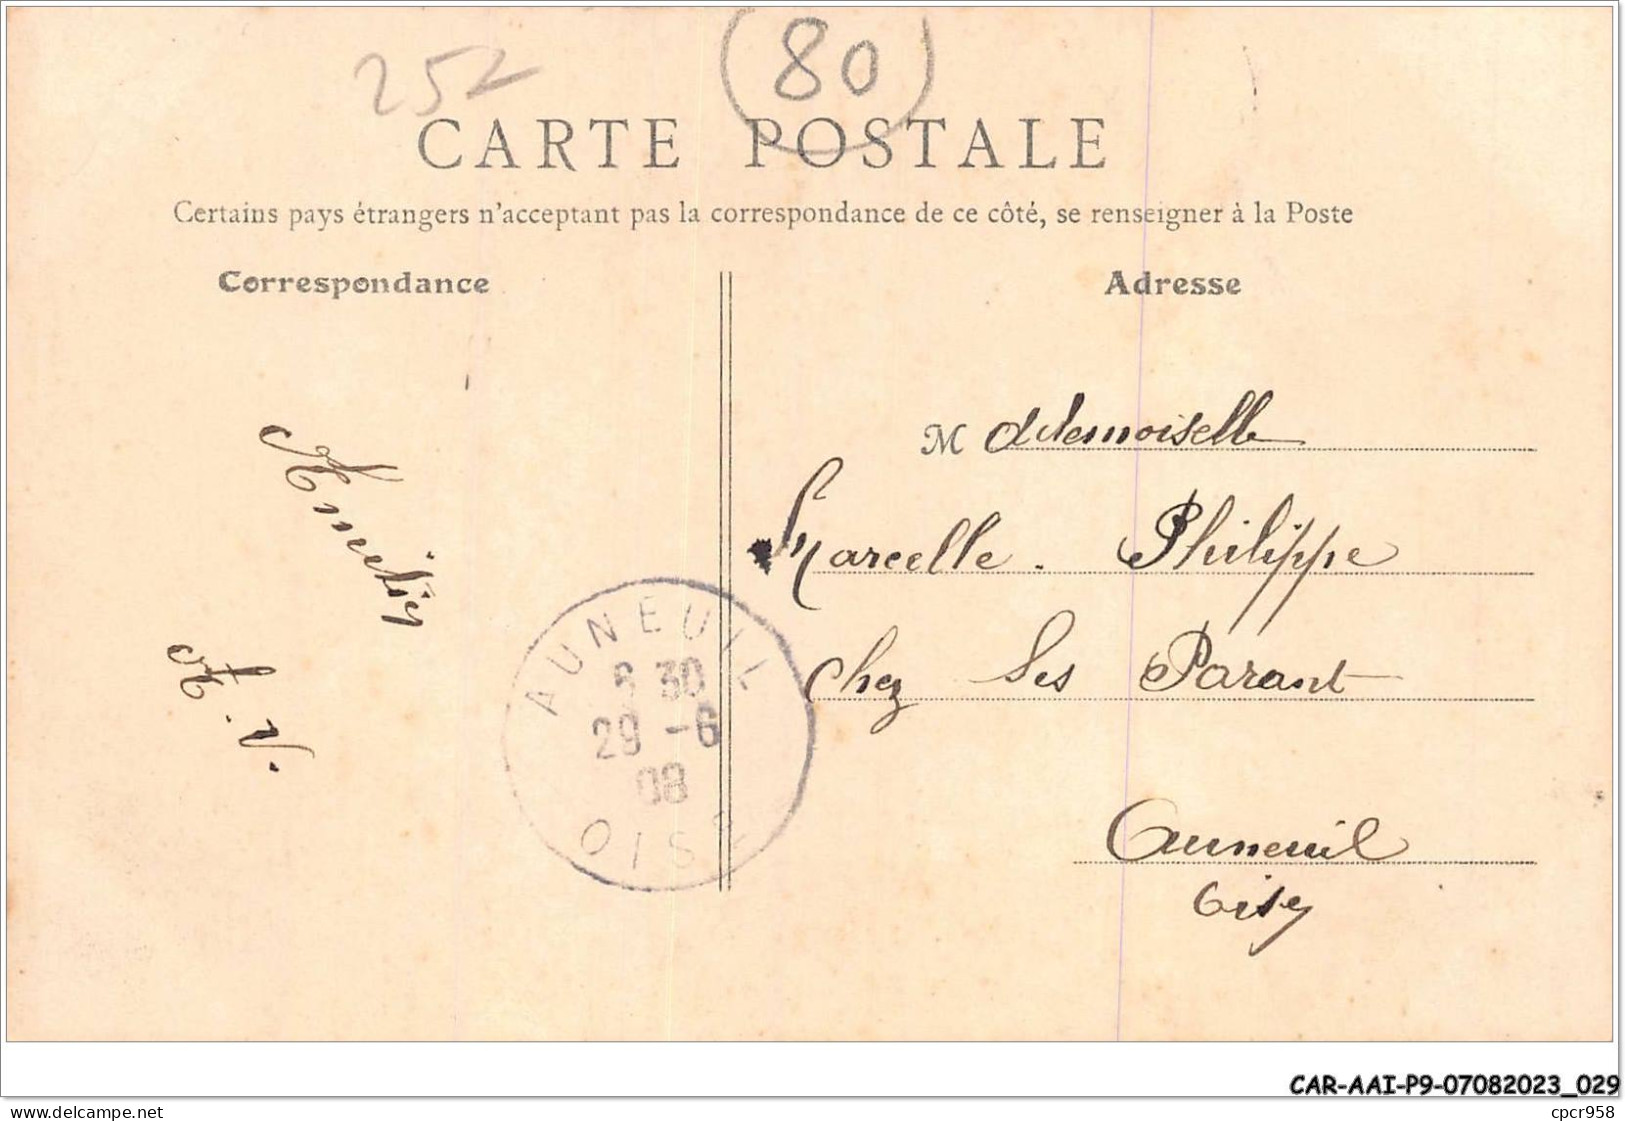 252 (80)
CARTE POSTALE
Certains pays étrangers n'acceptant pas la correspondance de ce côté, se renseigner à la Poste
Correspondance
Adresse
Amitiés
A. V.
AUNEUIL
6 30
29 -6
08
OISE
Mademoiselle
Marcelle. Philippe
Chez Ses Parant
Auneuil
Oise
CAR-AAI-P9-07082023_029
www.delcampe.net
cpcr958